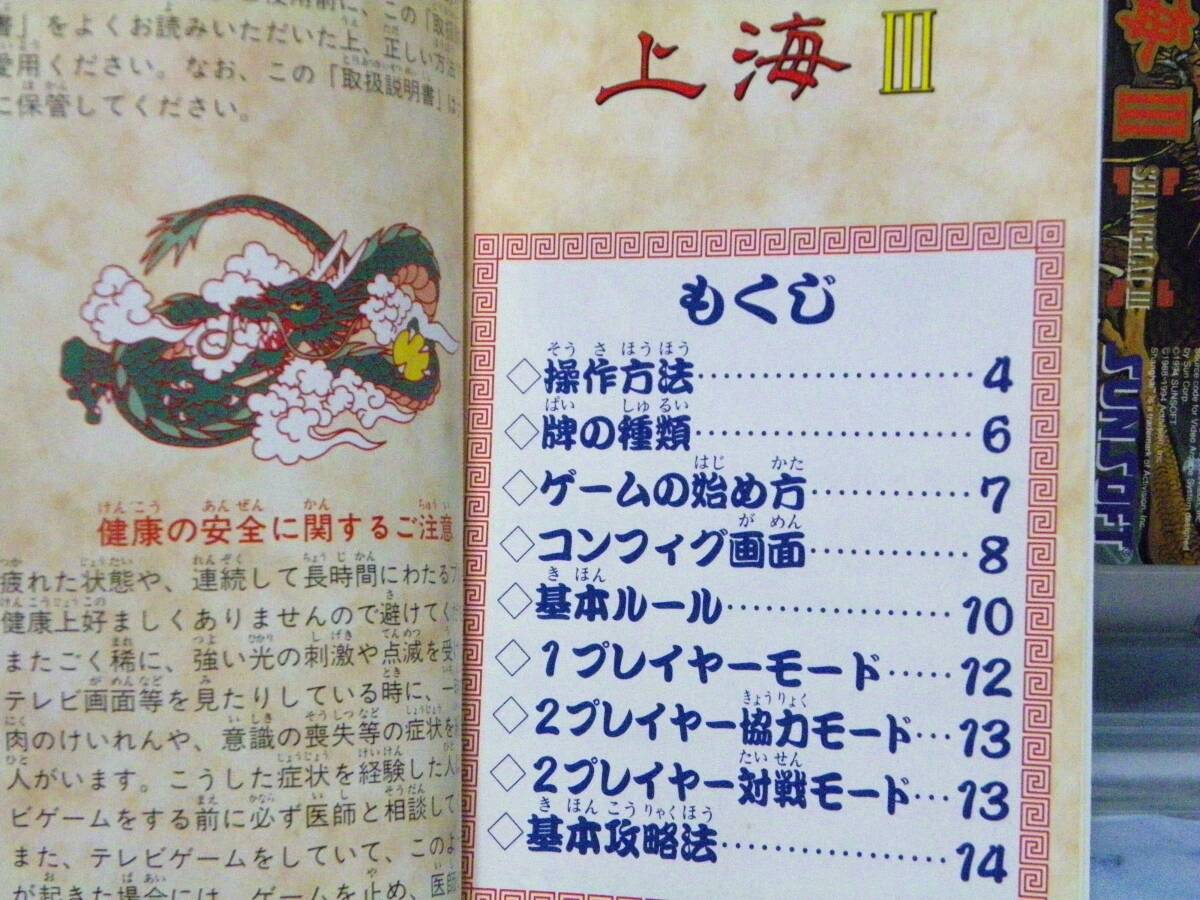 書」をよくお読みいただいた上、正しい方法
愛用ください。なお、この「取扱説明書」は
に保管してください。
健康の安全に関するご注意
疲れた状態や、連続して長時間にわたるプ
健康上好ましくありませんので避けてく
またごく稀に、強い光の刺激や点滅を受
テレビ画面等を見たりしている時に、一
肉のけいれんや、意識の喪失等の症状を
人がいます。こうした症状を経験した人
ビゲームをする前に必ず医師と相談して
また、テレビゲームをしていて、このよ
が起きた場合には、ゲームを止め、医師
上海III
もくじ
◇操作方法 4
◇牌の種類 6
◇ゲームの始め方 7
◇コンフィグ画面 8
◇基本ルール 10
◇1プレイヤーモード 12
◇2プレイヤー協力モード 13
◇2プレイヤー対戦モード 13
◇基本攻略法 14
海III
SHANGHAI III
SUNSOFT
by Sun Corp.
©1994 SUNSOFT
Shanghai™ is a trademark of Activision, Inc.